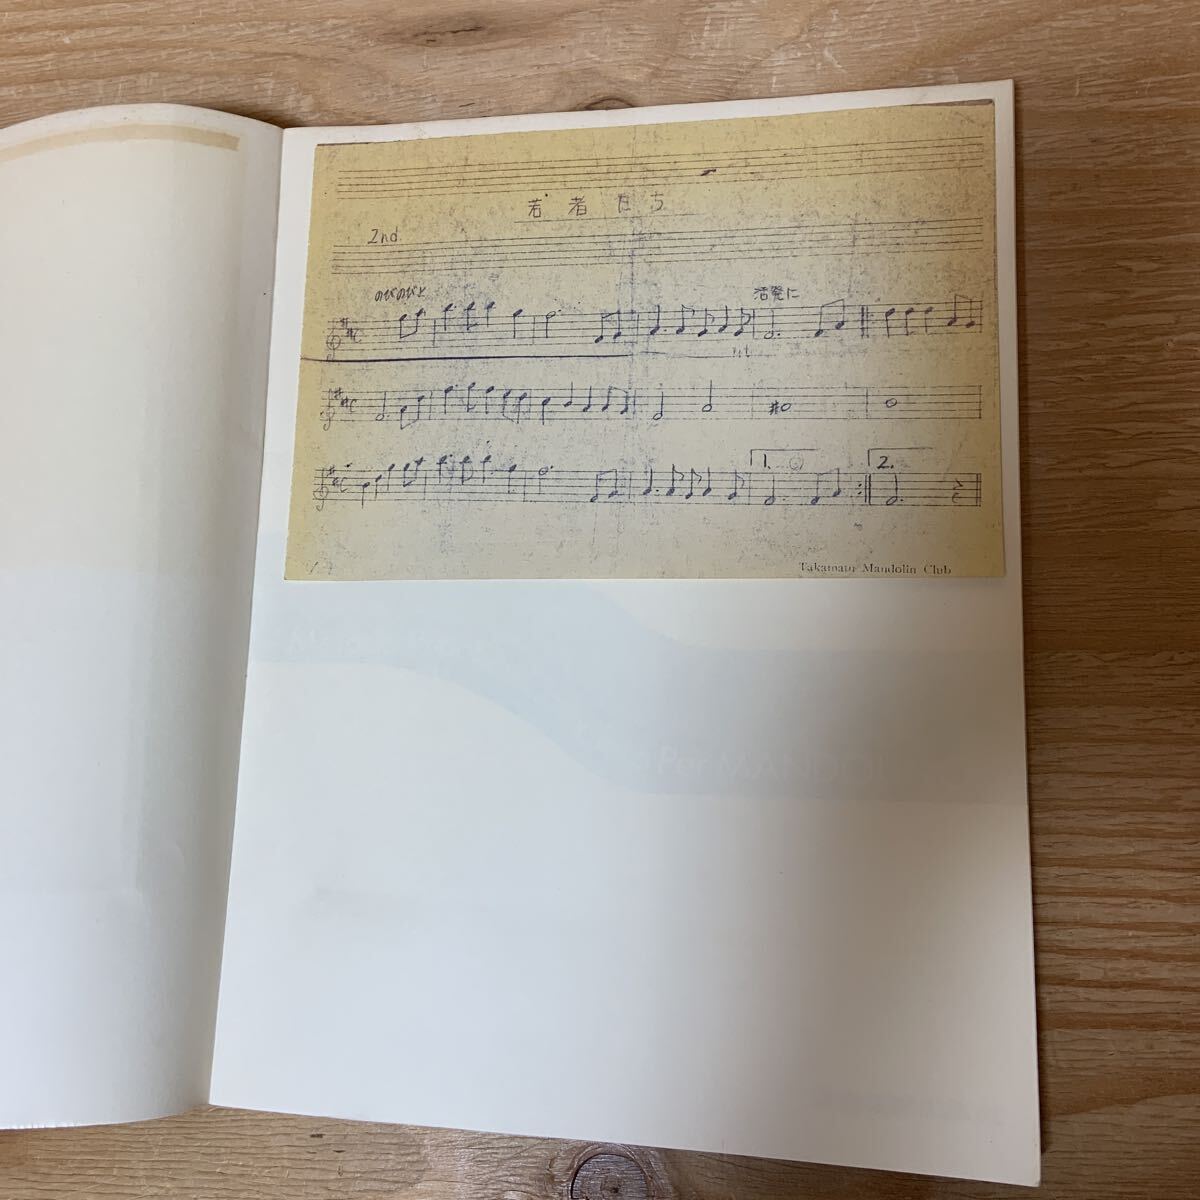 若者たち
2nd.
のびのびと
活発に
1.
2.
Takamatu Mandolin Club
Per MANDOL